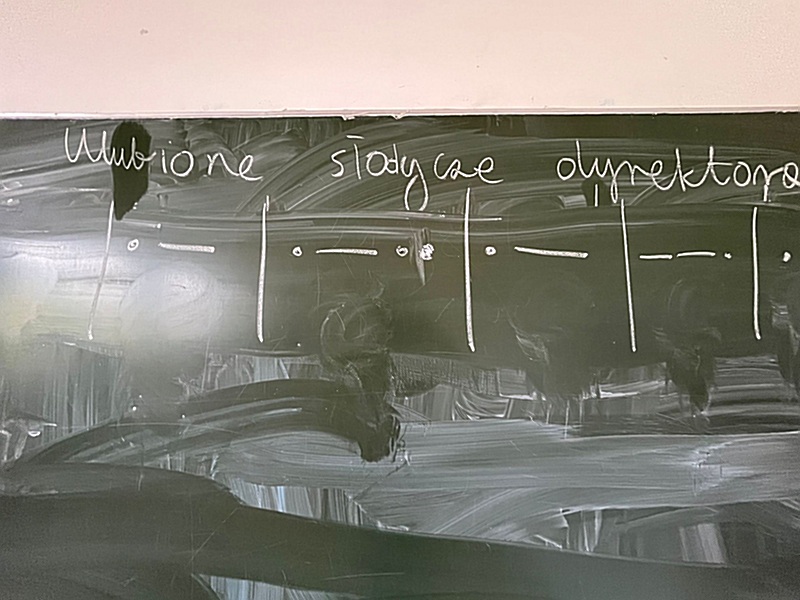 Ulubione słodycze dyrektora
| • — | • — • • | • — | — — • | •